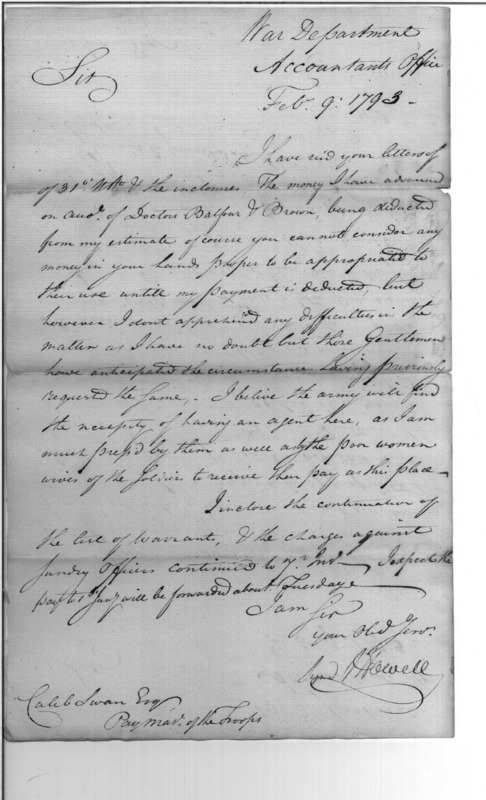 War Department
Accountants Office
Feb. 9: 1793-
Sir
I have rec'd your letters of
of 31st Ulto & the inclosures The money I have advanced
on acct. of Doctors Balfour & Brown, being deducted
from my estimate of course you cannot consider any
money in your hands proper to be appropriated to
their use untill my payment is deducted, but
however I dont apprehend any difficulties in the
matter as I have no doubt but those Gentlemen
have anticipated the circumstance having previously
requested the same,- I belive the army will find
the necessity of having an agent here, as I am
much press'd by them as well as by the poor women
wives of the Soldiers to receive their pay at this place-
I inclose the continuation of
the list of warrants, & the charges against
sundry Officers continued to I expect the
pay to Jany will be forwarded about Tuesday-
I am Sir
your Obed Serv.
Signd J Howell
Caleb Swan Esq
Pay Mas. of the Troops